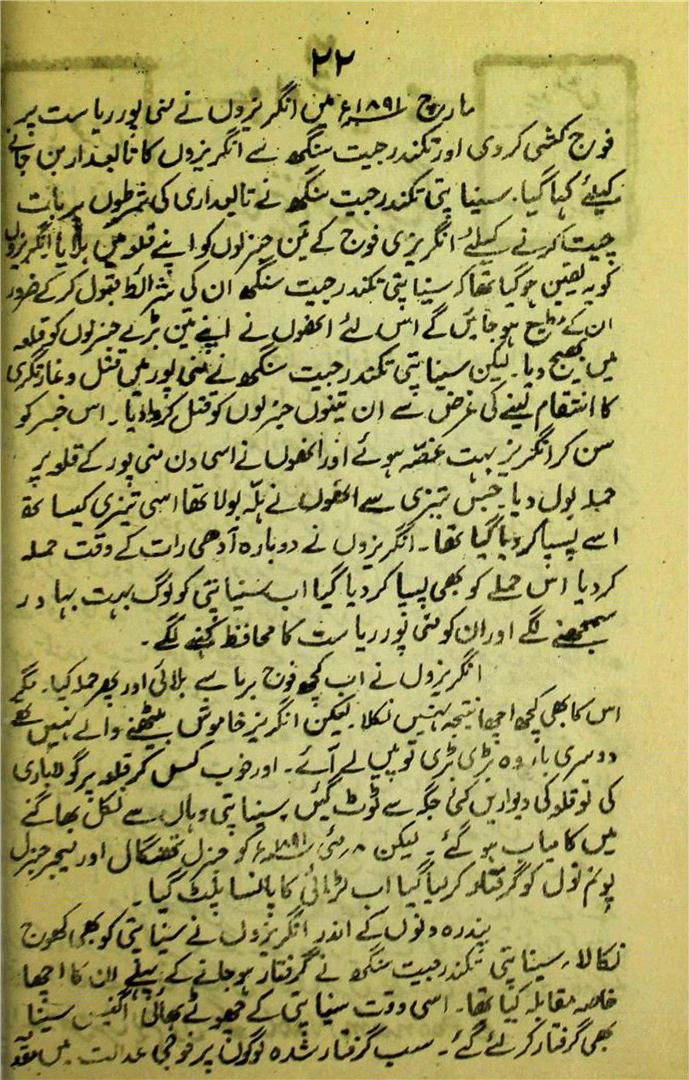 ۲۲
مارچ ۱۸۹۱ء میں انگریزوں نے منی پور ریاست پر
فوج کشی کر دی اور تکندر جیت سنگھ سے انگریزوں کا تابعدار بن جانے
کیلئے کہا گیا۔ سیناپتی تکندر جیت سنگھ نے تابعداری کی شرطوں پر بات
چیت کرنے کیلئے انگریزی فوج کے تین جنرلوں کو اپنے قلعہ میں بلایا انگریزوں
کو یہ یقین ہو گیا تھا کہ سیناپتی تکندر جیت سنگھ ان کی شرائط قبول کر کے ضرور
ان کے مطیع ہو جائیں گے اس لئے انھوں نے اپنے تین بڑے جنرلوں کو قلعہ
میں بھیج دیا۔ لیکن سیناپتی تکندر جیت سنگھ نے منی پور میں قتل و غارتگری
کا انتقام لینے کی غرض سے ان تینوں جنرلوں کو قتل کروا دیا۔ اس خبر کو
سن کر انگریز بہت غصّہ ہوئے اور انھوں نے اسی دن منی پور کے قلعہ پر
حملہ بول دیا۔ جس تیزی سے انھوں نے ہلّہ بولا تھا اسی تیزی کیساتھ
اسے پسپا کر دیا گیا تھا۔ انگریزوں نے دوبارہ آدھی رات کے وقت حملہ
کر دیا اس حملے کو بھی پسپا کر دیا گیا اب سیناپتی کو لوگ بہت بہادر
سمجھنے لگے اور ان کو منی پور ریاست کا محافظ کہنے لگے۔
انگریزوں نے اب کچھ فوج برما سے بلائی اور پھر حملہ کیا۔ مگر
اس کا بھی کچھ اچھا نتیجہ نہیں نکلا۔ لیکن انگریز خاموش بیٹھنے والے نہیں تھے
دوسری بار وہ بڑی بڑی توپیں لے آئے۔ اور خوب کس کر قلعہ پر گولہ باری
کی تو قلعہ کی دیواریں کئی جگہ سے ٹوٹ گئیں سیناپتی وہاں سے نکل بھاگنے
میں کامیاب ہو گئے۔ لیکن ۸ مئی ۱۸۹۱ء کو جنرل تھنگال اور میجر جنرل
کو گرفتار کر لیا گیا اب لڑائی کا پانسا پلٹ گیا۔
پندرہ دنوں کے اندر انگریزوں نے سیناپتی کو بھی کھوج
نکالا۔ سیناپتی تکندر جیت سنگھ نے گرفتار ہو جانے کے پہلے ان کا اچھا
خاصہ مقابلہ کیا تھا۔ اسی وقت سیناپتی کے چھوٹے بھائی سینا
بھی گرفتار کر لئے گئے۔ سب گرفتار شدہ لوگوں پر فوجی عدالت میں